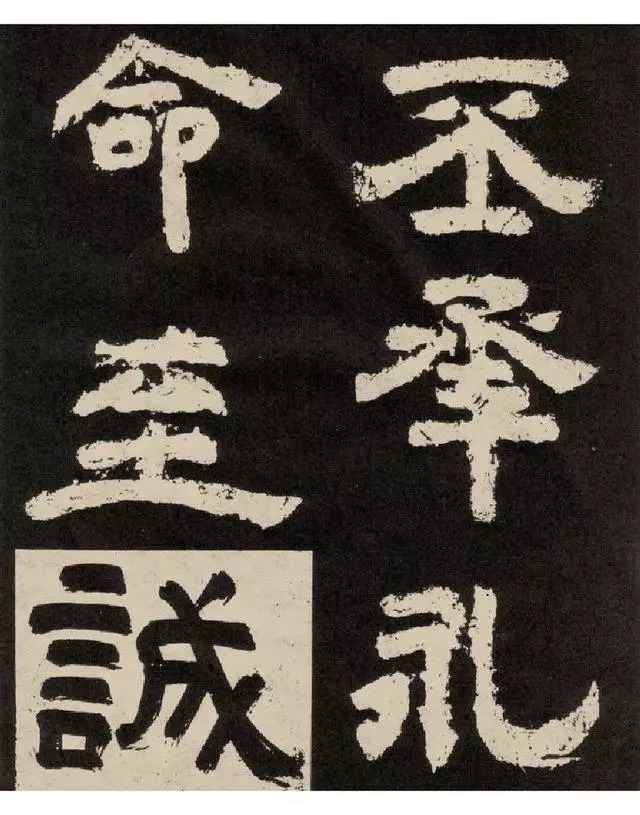 丕承永
命至誠